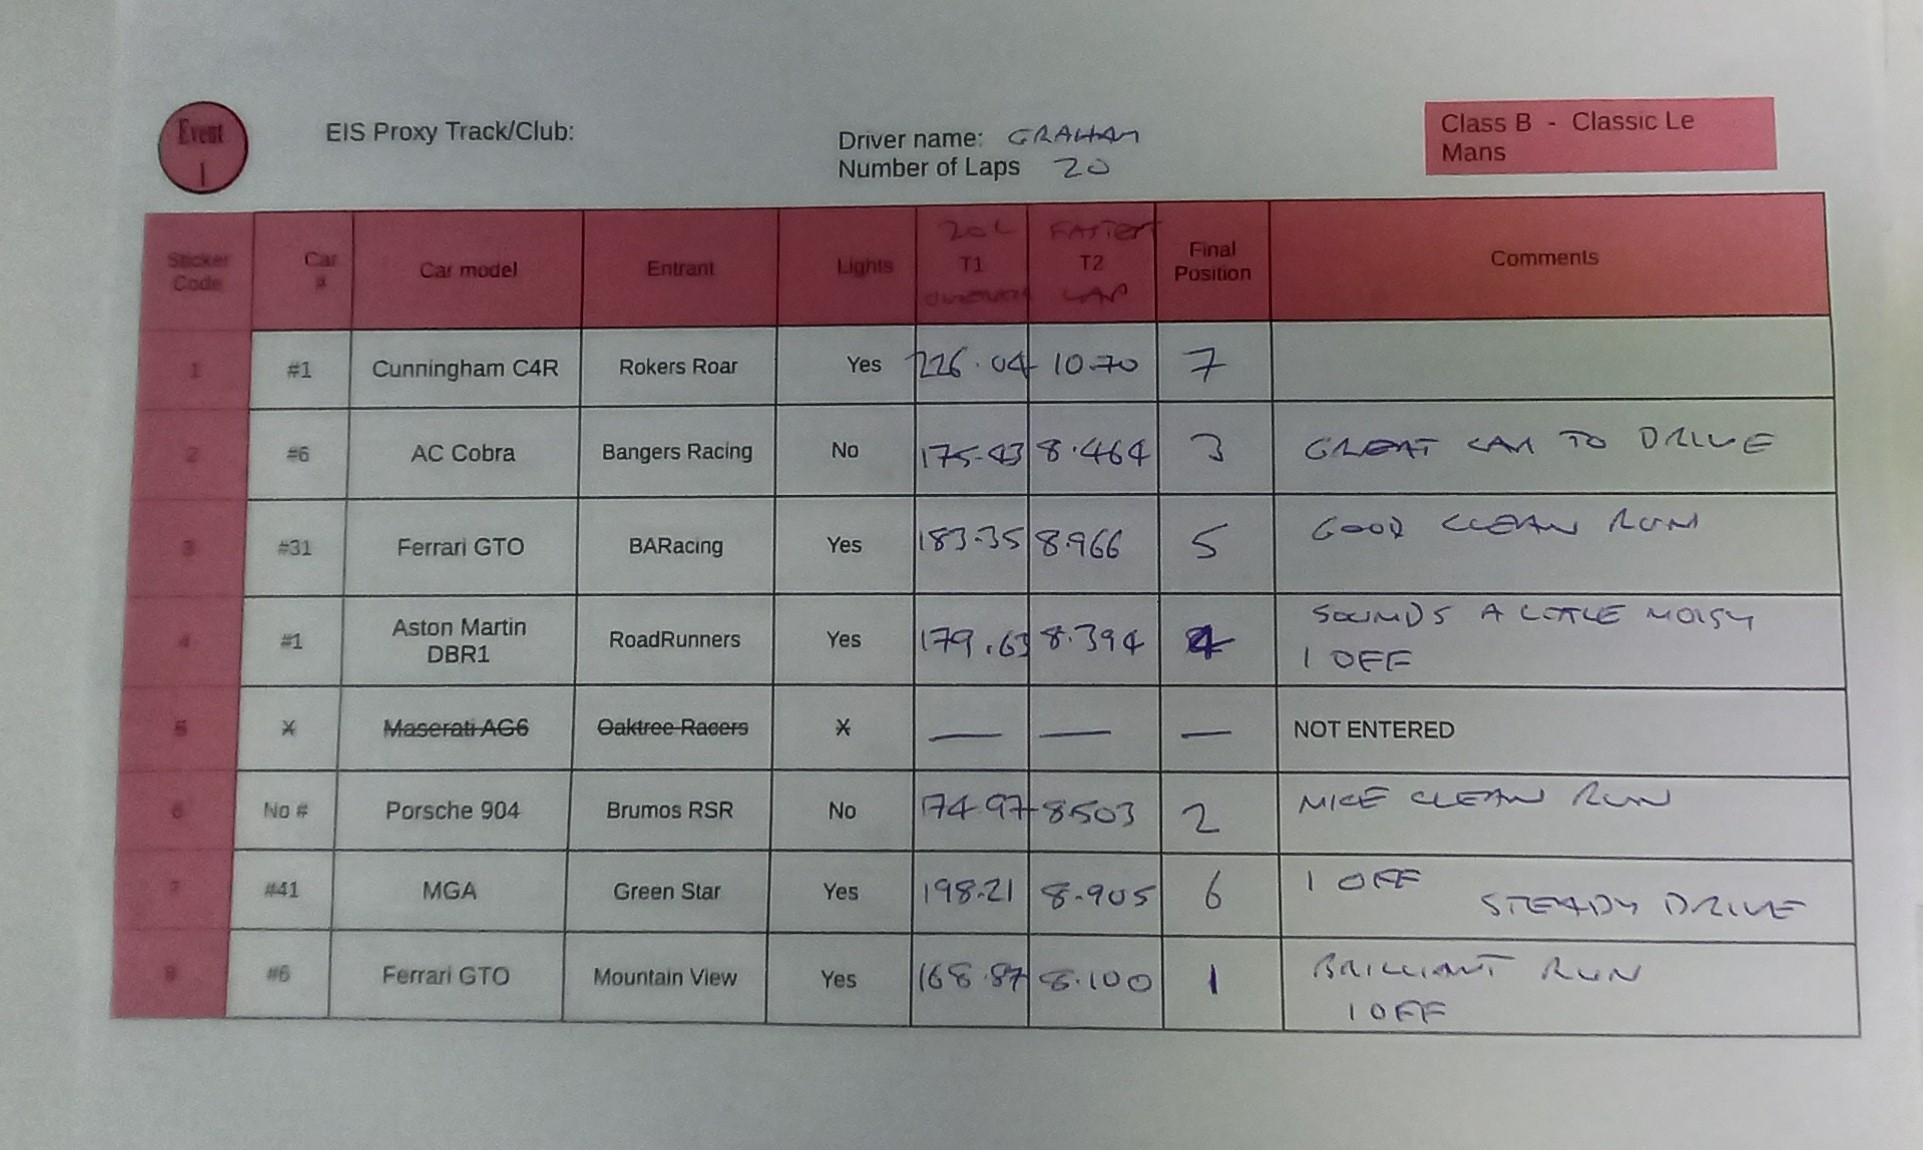 Event
1
EIS Proxy Track/Club:
Driver name: GRAHAM
Number of Laps 20
Class B - Classic Le
Mans
Sticker Code Car # Car model Entrant Lights 20L T1 FASTEST T2 LAP Final Position Comments
1 #1 Cunningham C4R Rokers Roar Yes 226.04 10.70 7
2 #6 AC Cobra Bangers Racing No 175.43 8.464 3 GREAT CAR TO DRIVE
3 #31 Ferrari GTO BARacing Yes 183.35 8.966 5 GOOD CLEAN RUN
4 #1 Aston Martin DBR1 RoadRunners Yes 179.63 8.394 4 SOUNDS A LITTLE NOISY
1 OFF
5 X Maserati AG6 Oaktree Racers X — — — NOT ENTERED
6 No # Porsche 904 Brumos RSR No 174.97 8.503 2 NICE CLEAN RUN
7 #41 MGA Green Star Yes 198.21 8.905 6 1 OFF
STEADY DRIVE
8 #6 Ferrari GTO Mountain View Yes 168.87 8.100 1 BRILLIANT RUN
1 OFF